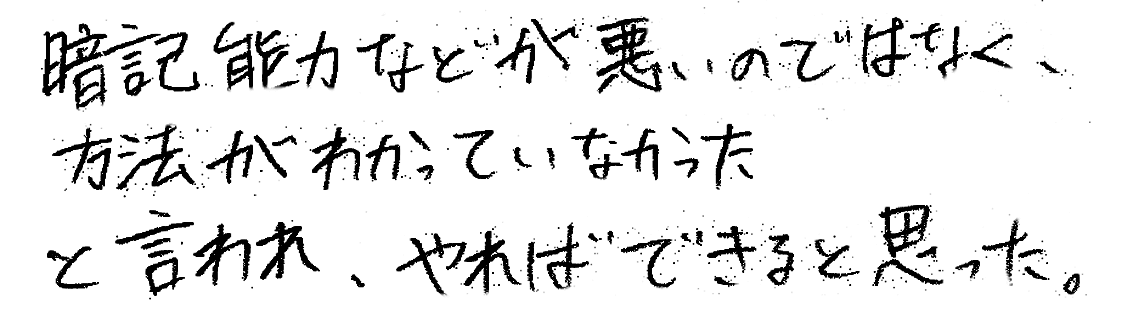 暗記能力などが悪いのではなく、
方法がわかっていなかった
と言われ、やればできると思った。